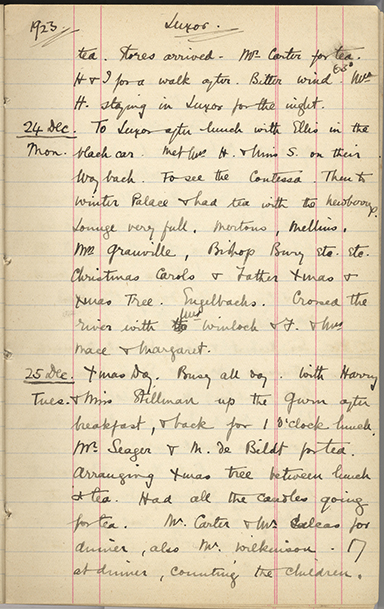 1923. Luxor.
tea. Stores arrived. Mr Carter for tea.
H & I for a walk after. Bitter wind. Mrs
H. staying in Luxor for the night.
24 Dec. To Luxor after lunch with Ellis in the
Mon. black car. Met Mrs H. & Miss S. on their
way back. To see the Contessa. Then to
Winter Palace & had tea with the Newberrys.
Lounge very full. Mertons, Mellins,
Mr Granville, Bishop Bury etc. etc.
Christmas Carols & Father Xmas &
Xmas Tree. Engelbachs. Crossed the
river with Mrs Winlock & F. & Mrs
Mace & Margaret.
25 Dec. Xmas Day. Busy all day. With Harry
Tues. & Miss Stillman up the Gurn after
breakfast, & back for 1 O'clock lunch.
Mr Seager & M. de Bildt for tea.
Arranging Xmas tree between lunch
& tea. Had all the candles going
for tea. Mr. Carter & Mr. for
dinner, also Mr. Wilkinson. 17
at dinner, counting the children.